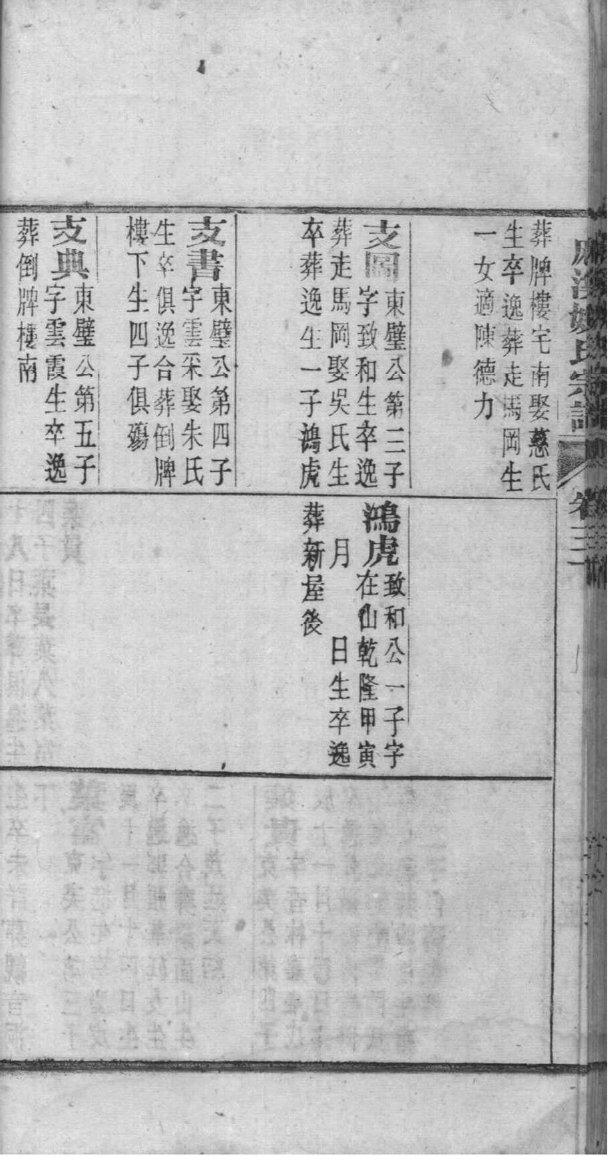 姚氏宗譜
卷三
葬牌樓宅南娶慈氏
生卒逸葬走馬岡生
一女適陳德力
支圖東璧公第三子
字致和生卒逸
葬走馬岡娶吳氏生
卒葬逸生一子鴻虎
支書東璧公第四子
字雲采娶朱氏
生卒俱逸合葬倒牌
樓下生四子俱殤
支典東璧公第五子
字雲霞生卒逸
葬倒牌樓南
鴻虎致和公一子字
在山乾隆甲寅
月 日生卒逸
葬新屋後